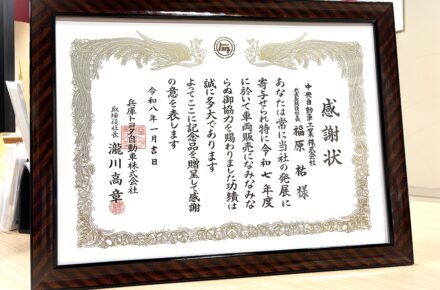 感謝状
中央自動車工業株式会社
代表取締役社長 福原祐様
あなたは常に当社の発展に
寄与せられ特に令和七年度
に於いて車両販売になみなみな
らぬ御協力を賜わりました功績は
誠に多大であります
よってここに記念品を贈呈して感謝
の意を表します
令和八年一月吉日
兵庫トヨタ自動車株式会社
取締役社長 瀧川高章